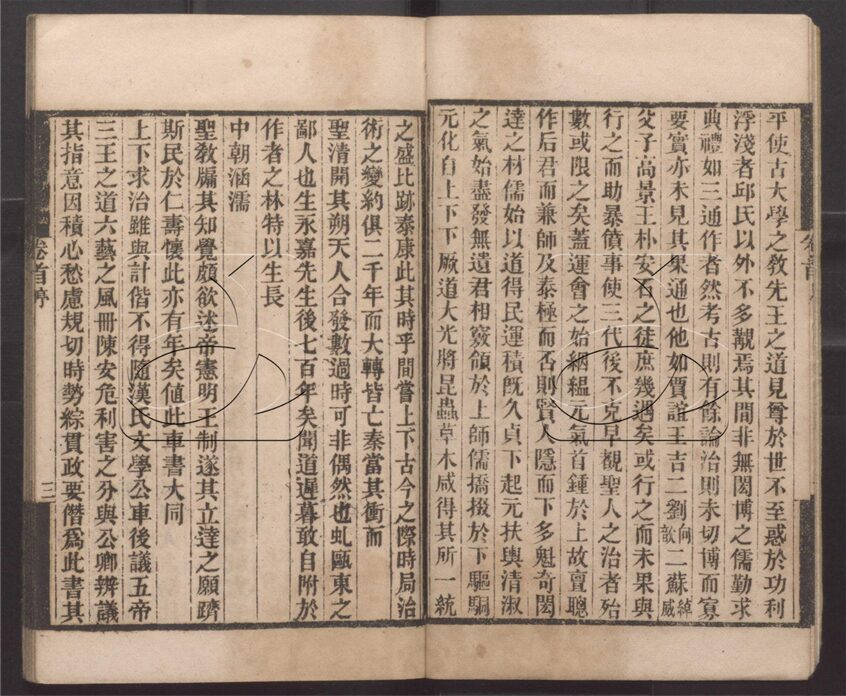 平使古大學之敎先王之道見尊於世不至惑於功利
浮淺者邱氏以外不多覯焉其間非無閎博之儒勤求
典禮如三通作者然考古則有餘論治則未切博而寡
要實亦未見其果通也他如賈誼王吉二劉向歆二蘇綽威
父子高景王朴安石之徒庶幾遇矣或行之而未果與
行之而助暴僨事使三代後不克早覩聖人之治者殆
數或限之矣蓋運會之始絪緼元氣首鍾於上故亶聰
作后君而兼師及泰極而否則賢人隱而下多魁奇閎
達之材儒始以道得民運積旣久貞下起元扶輿清淑
之氣始盡發無遺君相竅領於上師儒撟掇於下驅駧
元化自上下下厥道大光將昆蟲草木咸得其所一統
之盛比跡泰康此其時乎間嘗上下古今之際時局治
術之變約俱二千年而大轉皆亡秦當其衝而
聖清開其朔天人合發數過時可非偶然也虬甌東之
鄙人也生永嘉先生後七百年矣聞道遲暮敢自附於
作者之林特以生長
中朝涵濡
聖敎牖其知覺頗欲述帝憲明王制遂其立達之願躋
斯民於仁壽懷此亦有年矣値此車書大同
上下求治雖與計偕不得隨漢氏文學公車後議五帝
三王之道六藝之風冊陳安危利害之分與公卿辨議
其指意因積心愁慮規切時勢綜貫政要僭爲此書其
卷首序
三